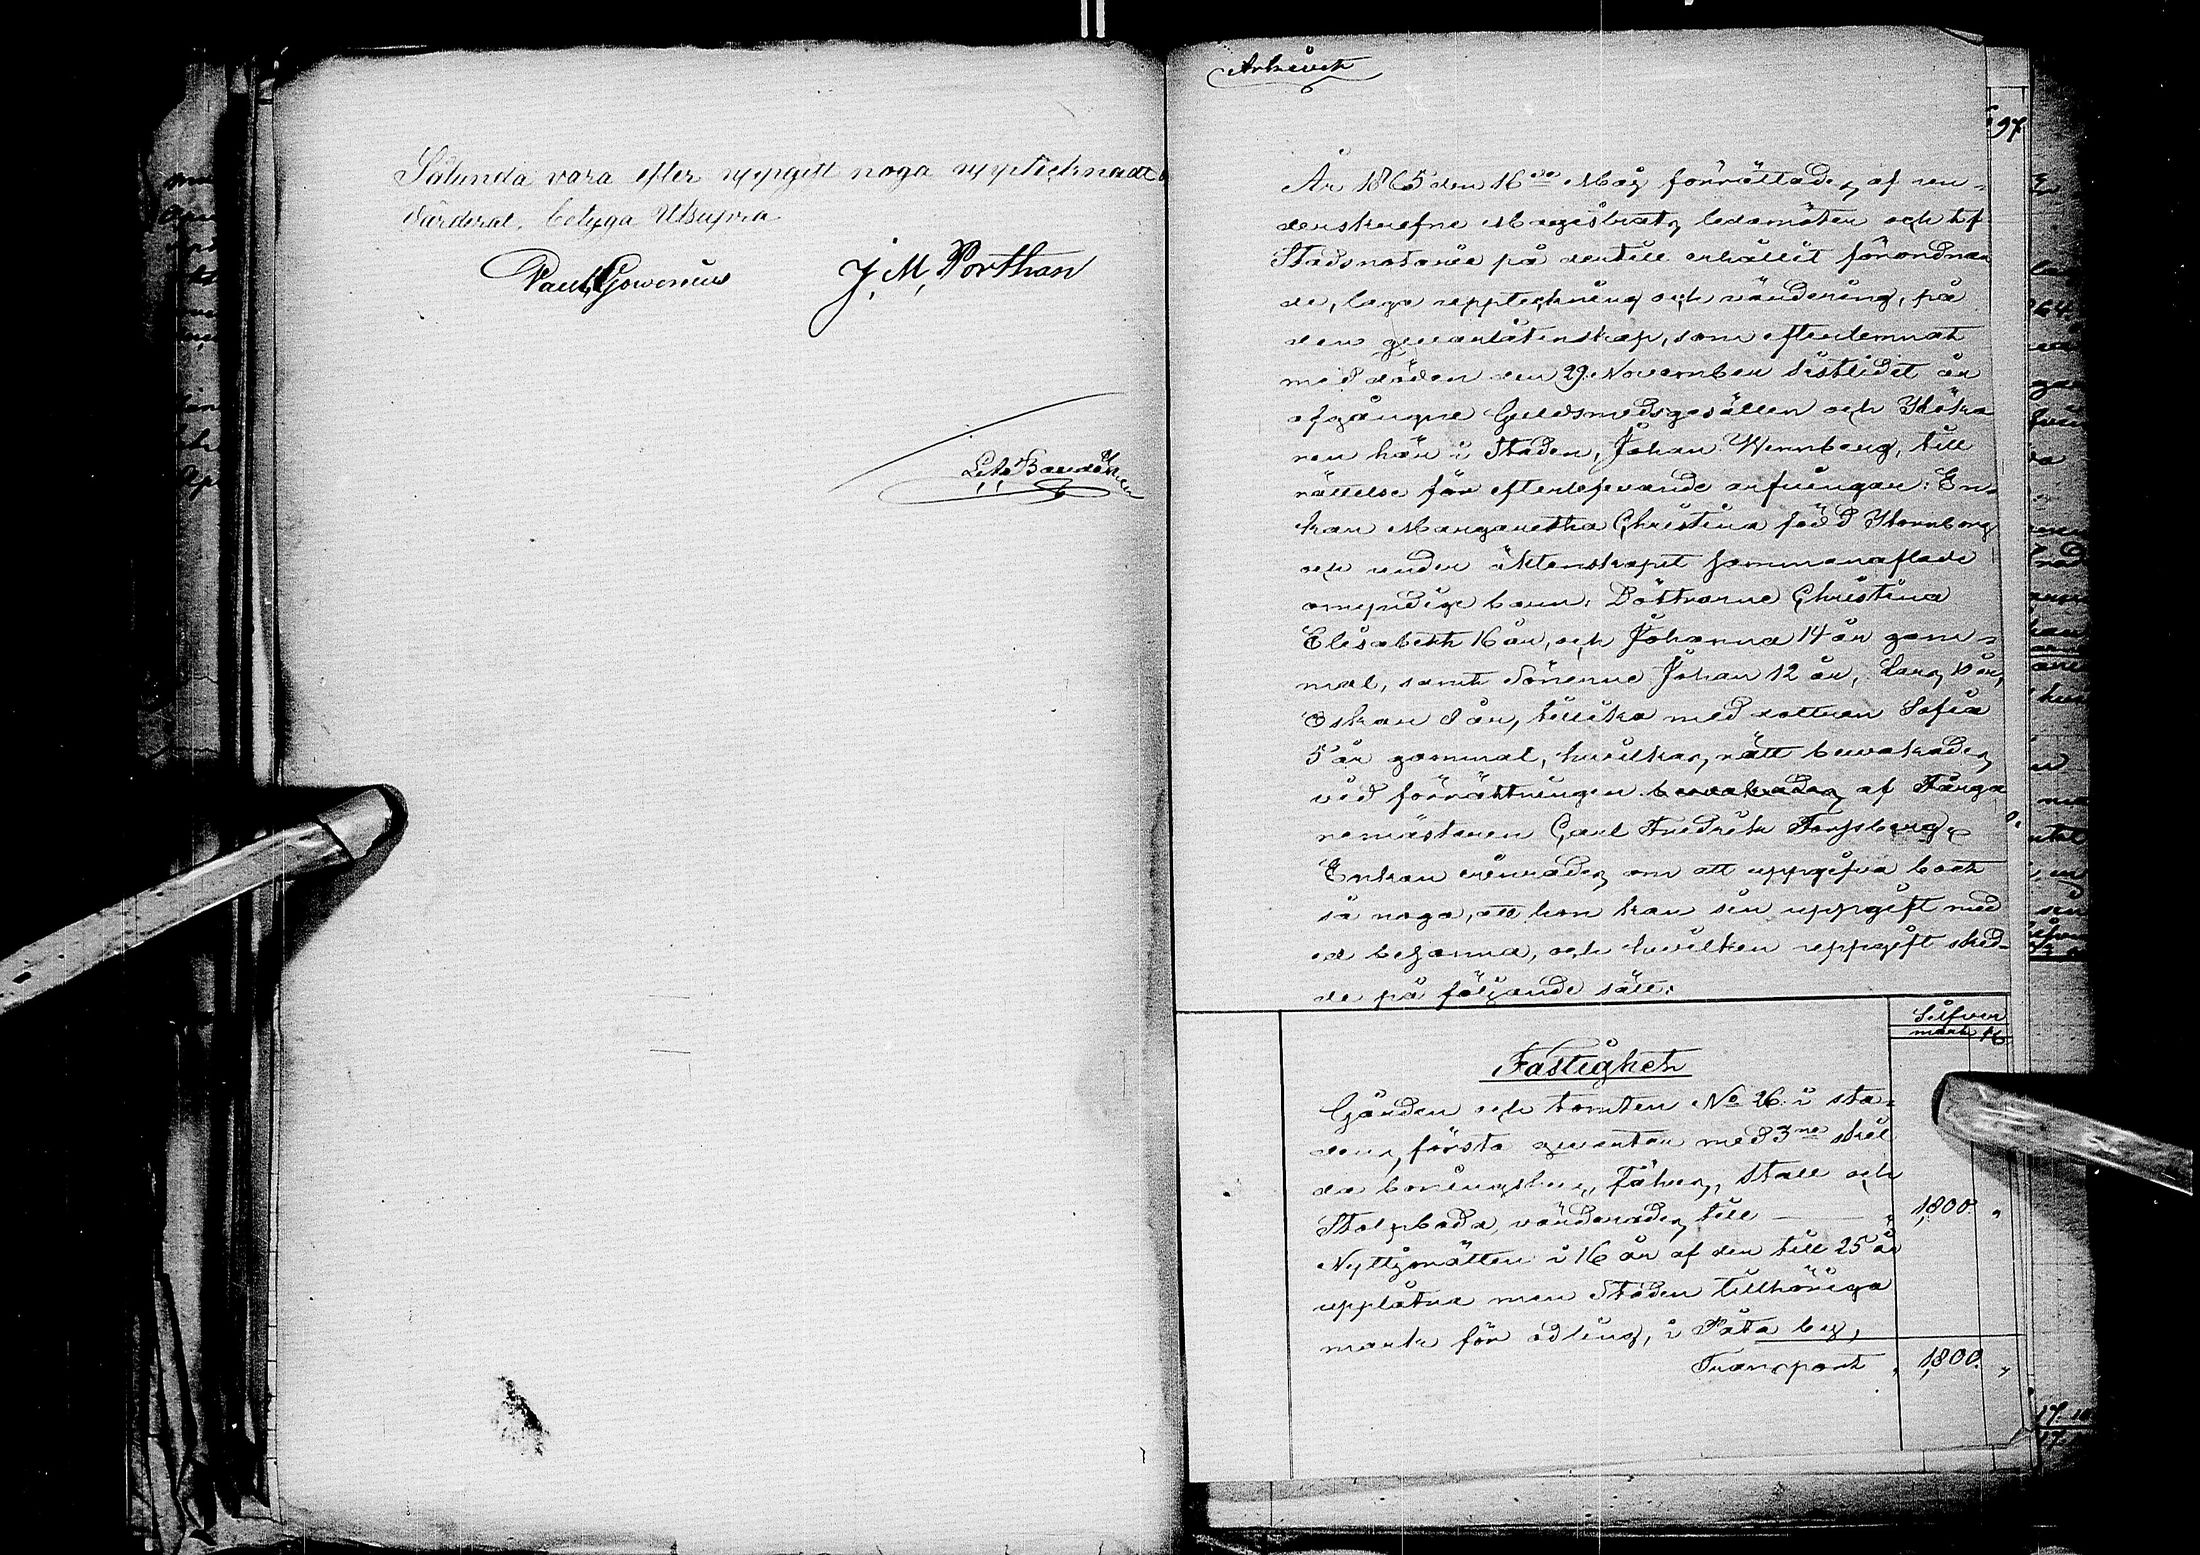 Sålunda vara efter uppgift noga upptecknadt o
värderat, betyga Utsupra
Paul Gowenius J. M. Porthan
Arkivet
97
År 1865 den 16de Maj förrättades af un-
derskrefne Magistrats ledamöter och tf
Stadsnotarie på dertill erhållit förordnan
de, laga uppteckning och värdering, på
den qvarlåtenskap, som efterlemnat
med döden den 29. November sistlidet år
afgångne Guldsmedsgesällen och Höka
ren här i Staden, Johan Wennberg, till
rättelse för efterlefvande arfvingar: En-
kan Margaretha Christina född Stornberg
och under äktenskapet sammanaflade
omyndige barn: Döttrarne Christina
Elisabeth 16 år, och Johanna 14 år gam-
mal, samt Sönerne Johan 12 år, Lars 10 år,
Oskar 8 år, tillika med dottren Sofia
5 år gammal, hvilkas rätt bevakades
vid förrättningen bevakades af Färga
remästaren Carl Fredrik Forssberg.
Enkan erinrades om att uppgifva boet
så noga, att hon kan sin uppgift med
ed bejanna, och hvilken uppgift sked-
de på följande sätt:
Silfver
mark
Fastighet
Gården och tomten No 26. i sta-
dens första qvarter med 3ne skil
da boningshus, Fähus, Stall och
Stolpboda, värderades till 1,800. "
Nyttjorätten i 16 år af den till 25 år
upplåtna men Staden tillhöriga
mark för odling, i Pata by,
Transport " 1,800. "